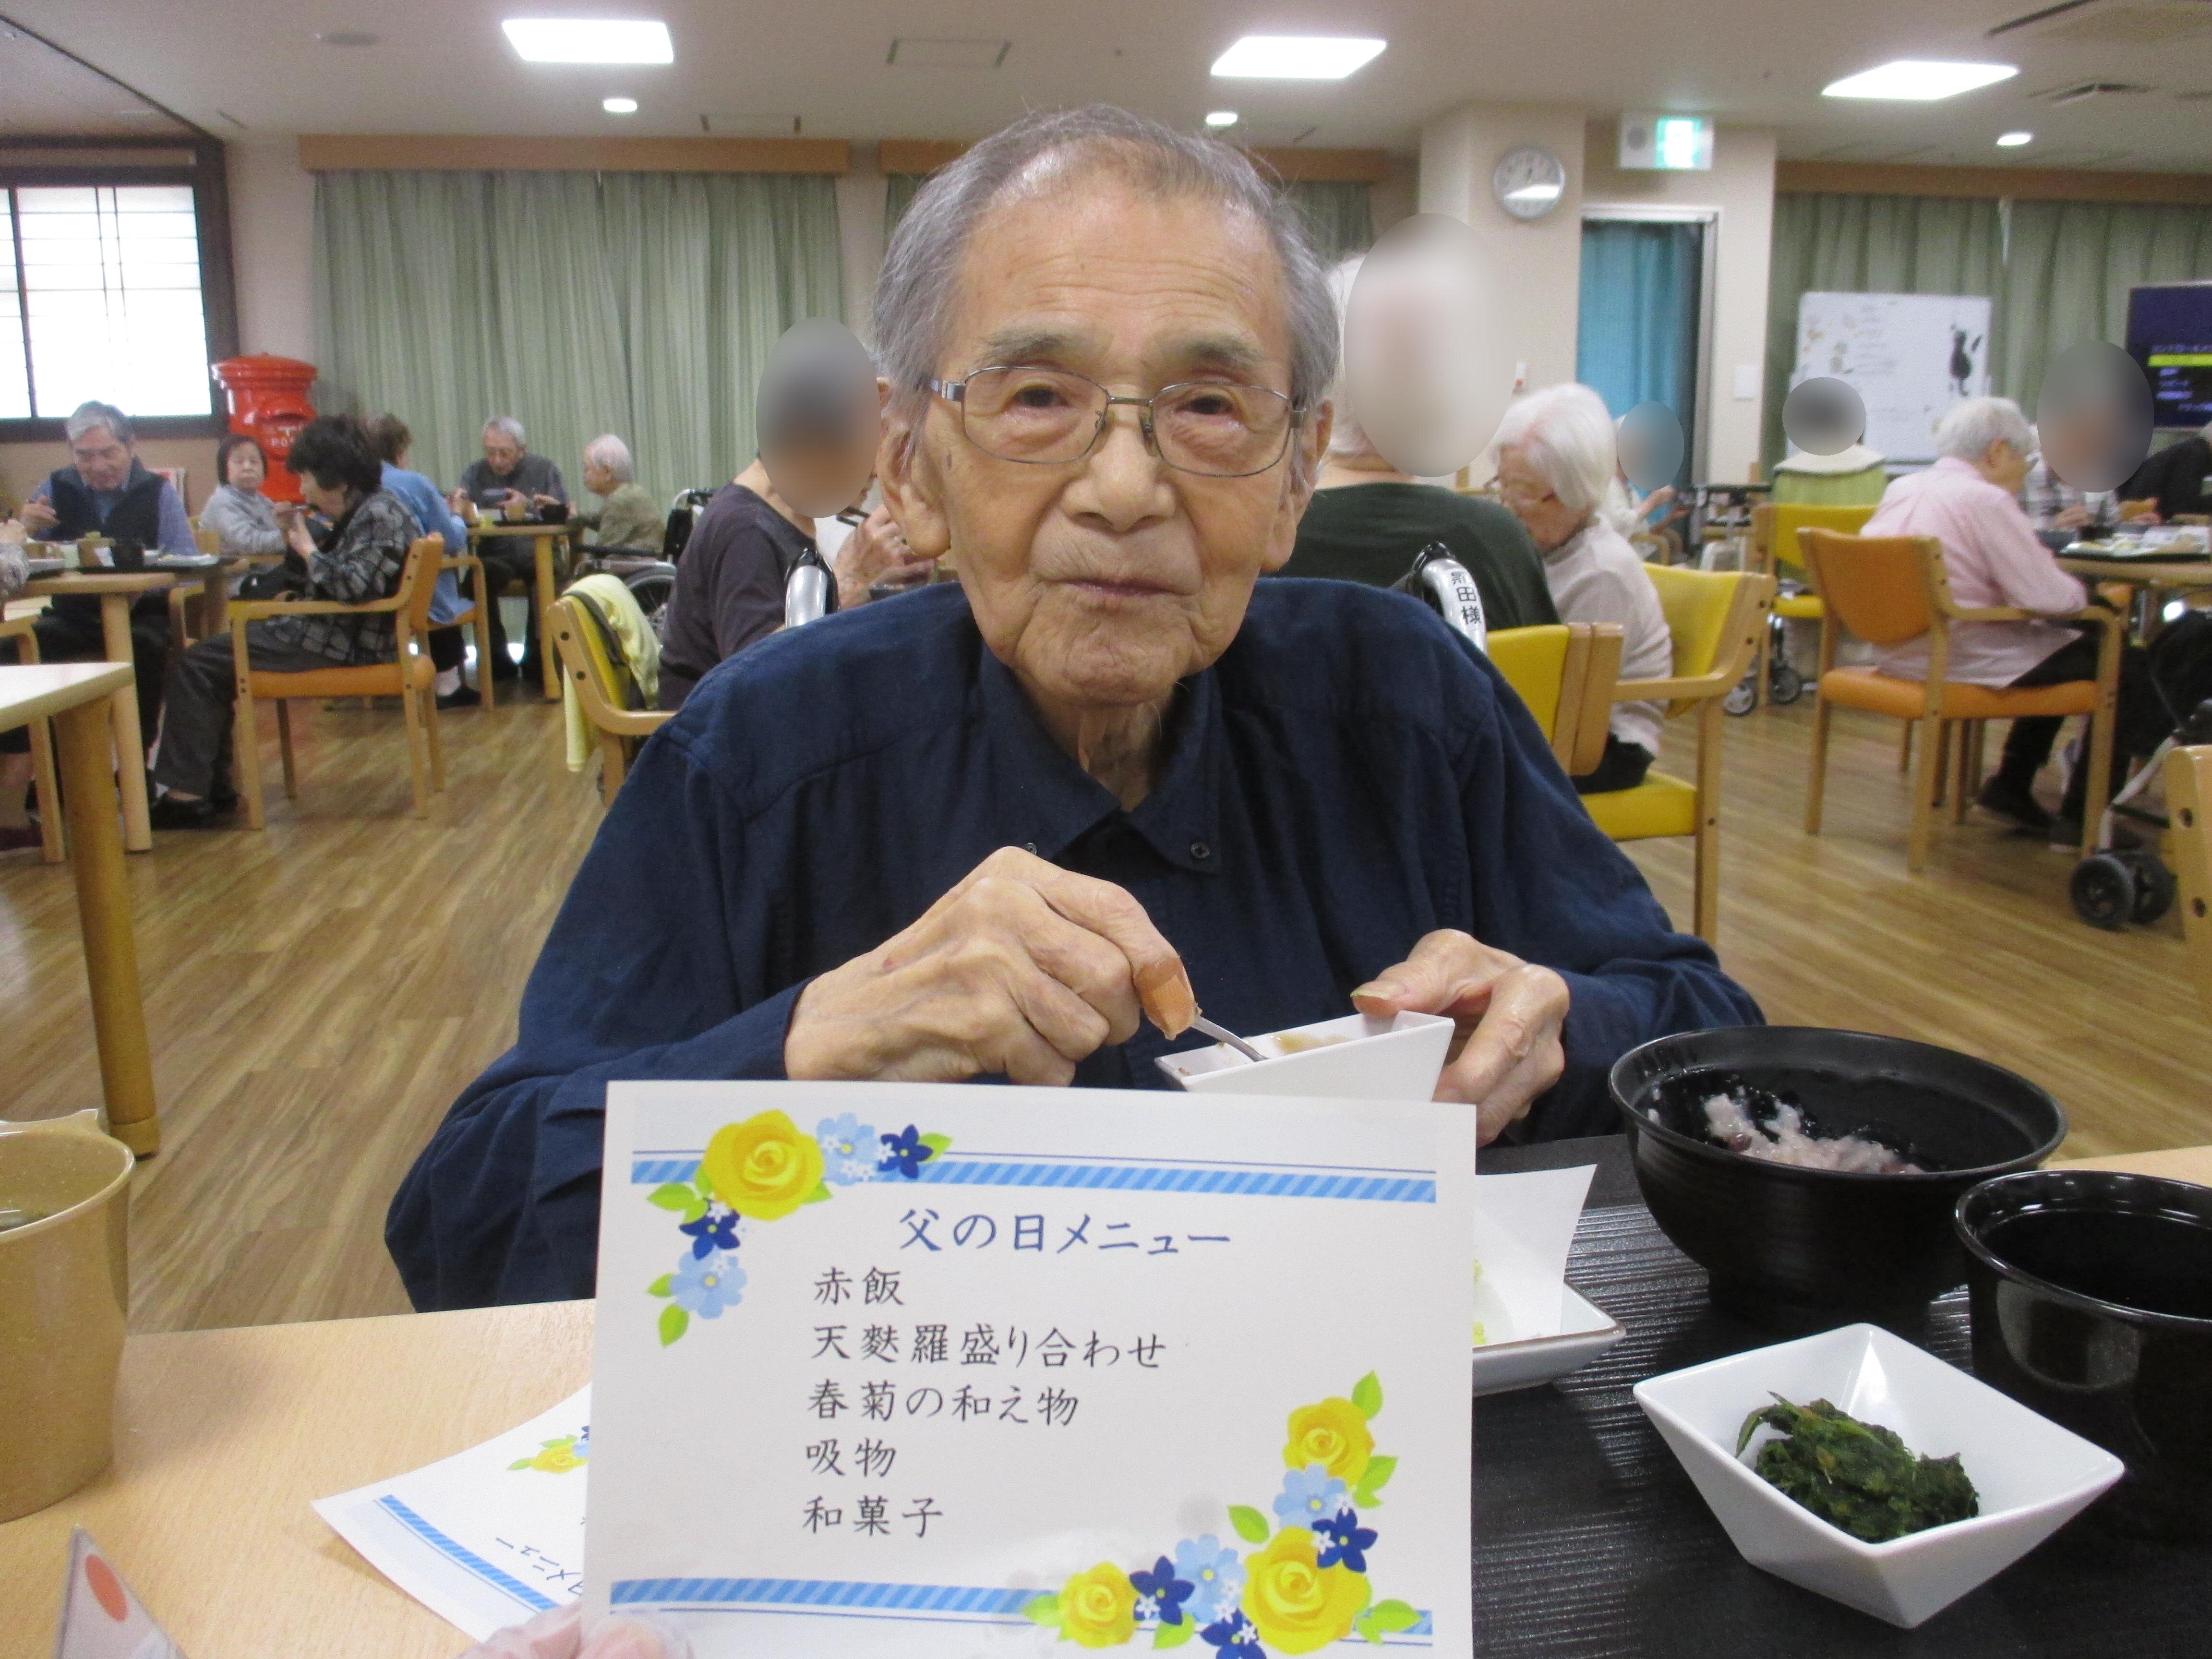 父の日メニュー
赤飯
天麩羅盛り合わせ
春菊の和え物
吸物
和菓子
田様
POST